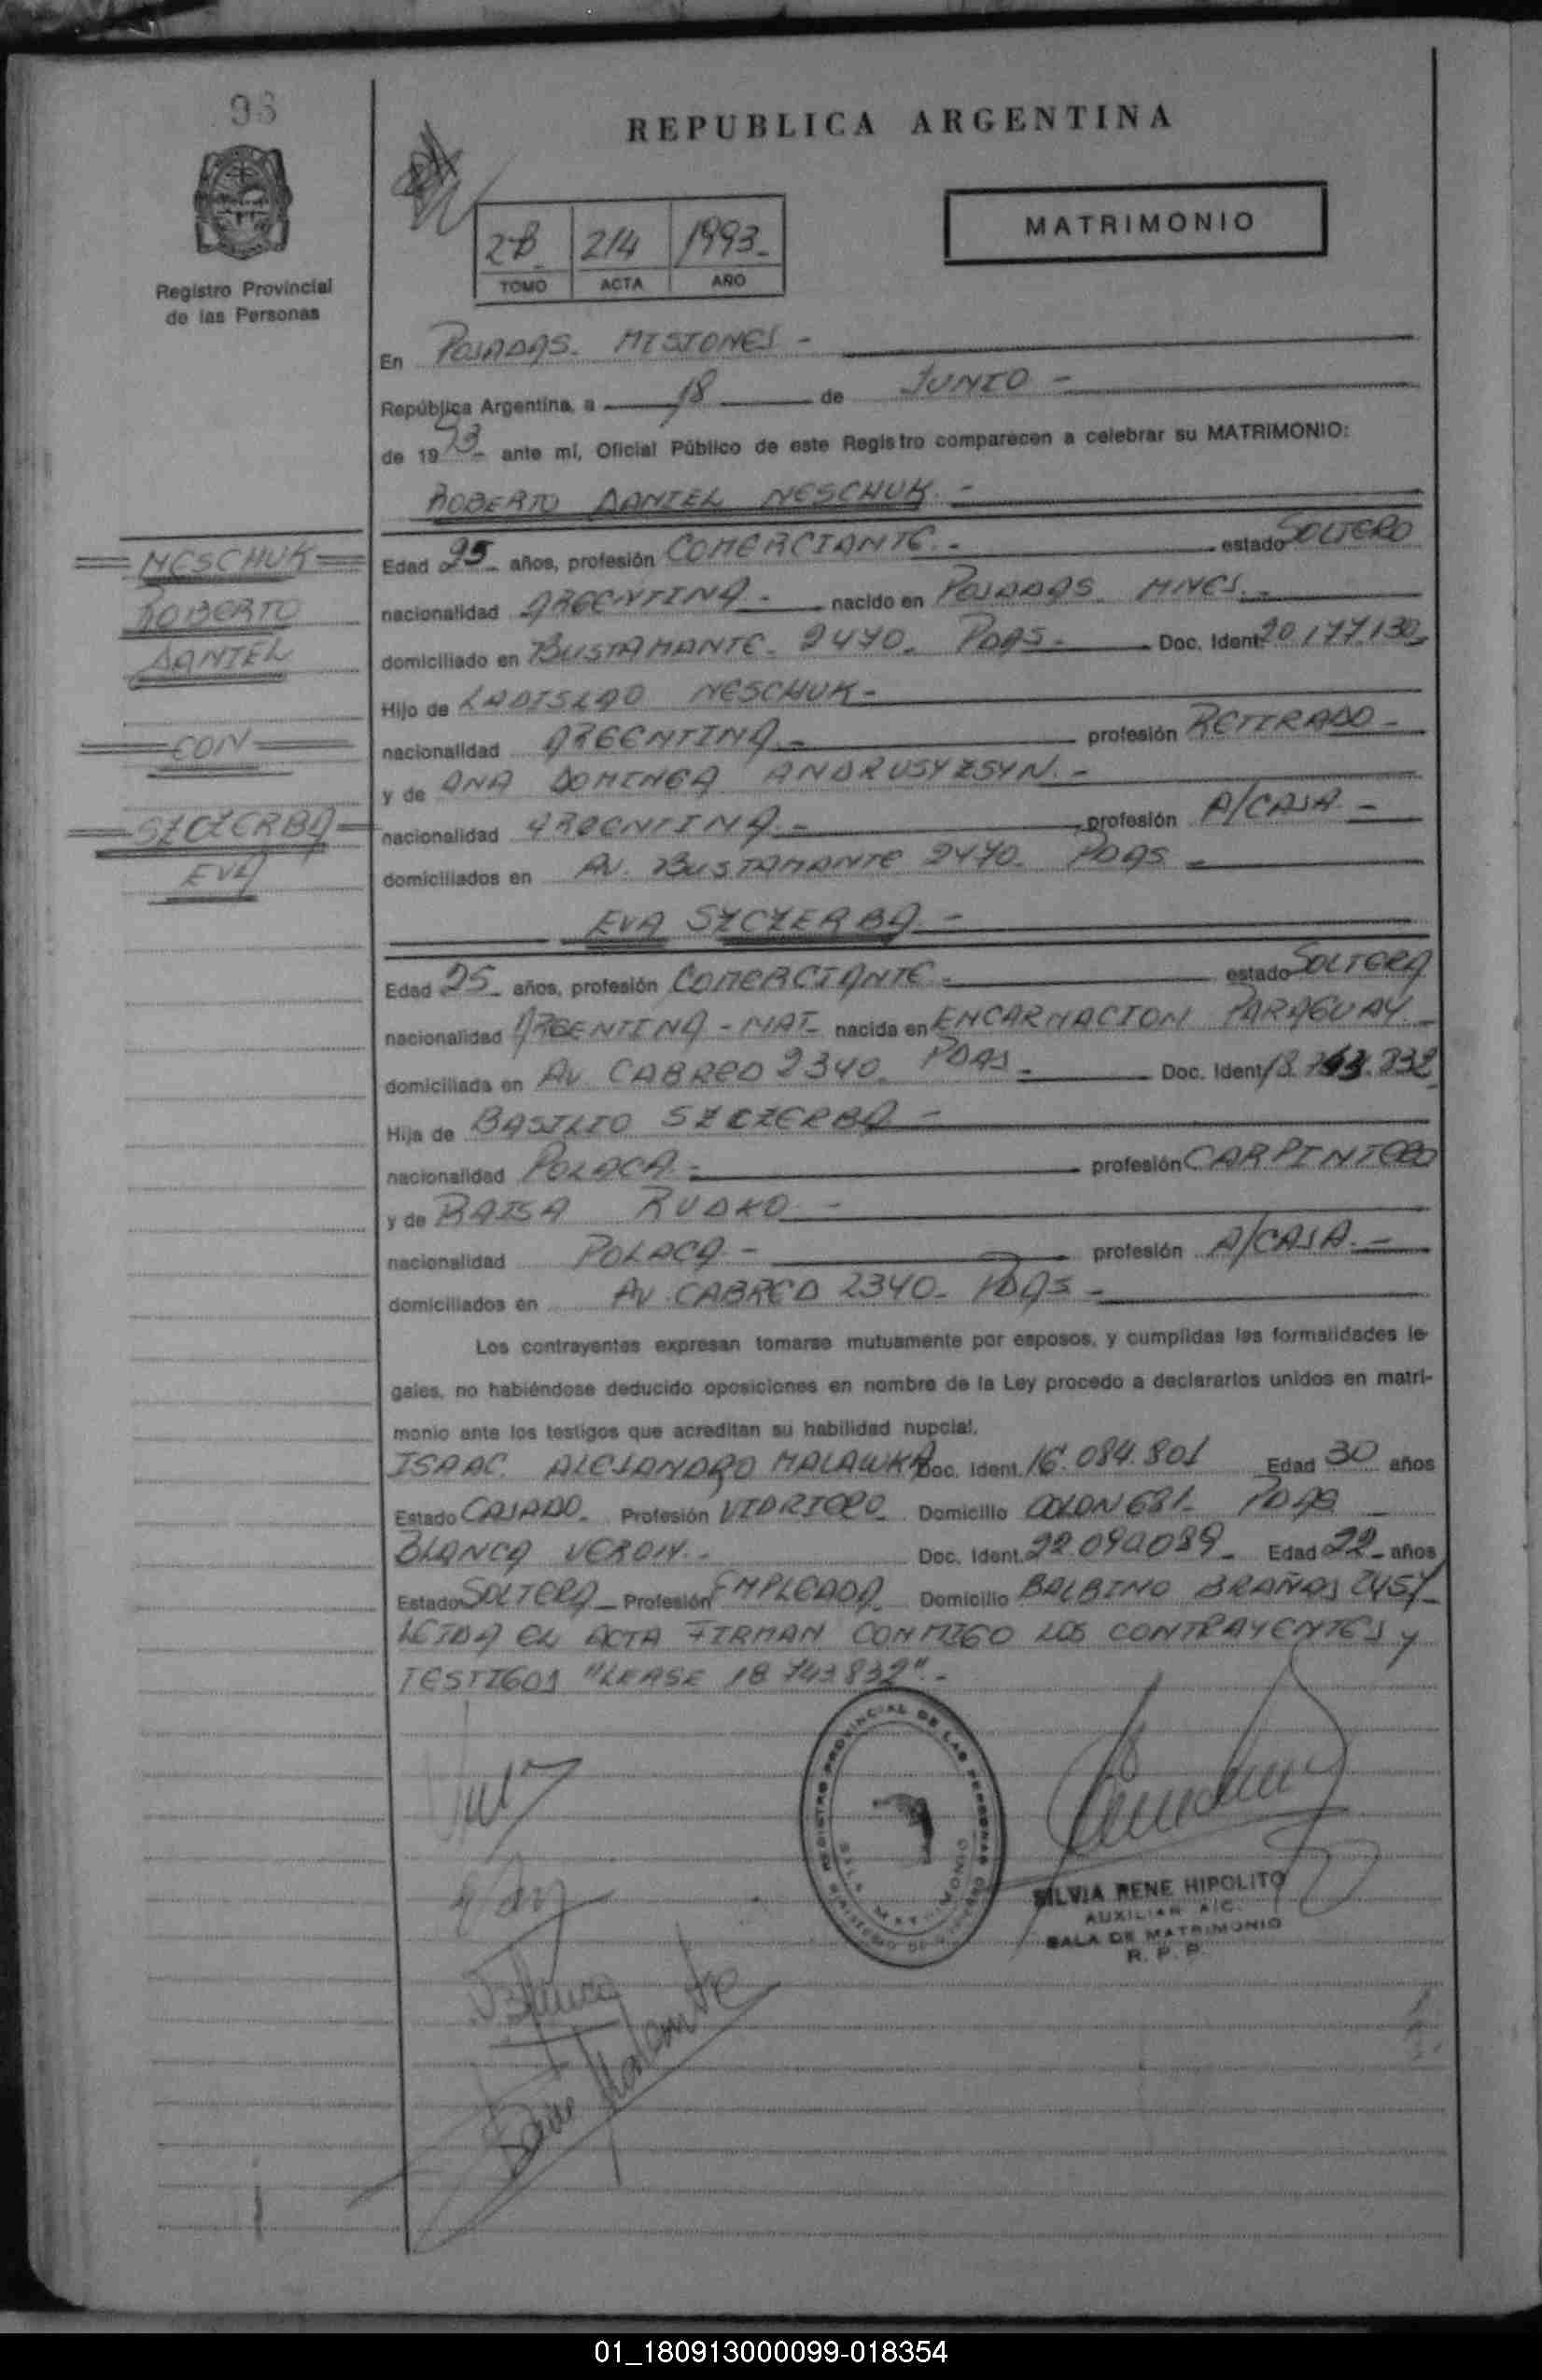 98
REPUBLICA ARGENTINA
MATRIMONIO
2B 214 1993
TOMO ACTA AÑO
Registro Provincial
de las Personas
En POSADAS. MISIONES -
República Argentina, a 18 de JUNIO -
de 1993- ante mí, Oficial Público de este Registro comparecen a celebrar su MATRIMONIO:
ROBERTO DANIEL NESCHUK. -
NESCHUK
ROBERTO
DANIEL
CON
SZCZERBA
EVA
Edad 25 años, profesión COMERCIANTE. - estado SOLTERO
nacionalidad ARGENTINA - nacido en POSADAS MNES. -
domiciliado en BUSTAMANTE - 2470. PDAS - Doc. Ident. 20.177.130
Hijo de LADISLAO NESCHUK -
nacionalidad ARGENTINA. - profesión RETIRADO -
y de ANA DOMINGA ANDRUSYZSYN. -
nacionalidad ARGENTINA - profesión A/CASA -
domiciliados en AV. BUSTAMANTE 2470. PDAS -
EVA SZCZERBA. -
Edad 25 años, profesión COMERCIANTE - estado SOLTERA
nacionalidad ARGENTINA - NAT- nacida en ENCARNACION PARAGUAY -
domiciliada en AV CABRED 2340. PDAS - Doc. Ident. 18.743.832
Hija de BASILIO SZCZERBA -
nacionalidad POLACA. - profesión CARPINTERO
y de RAISA RUDKO -
nacionalidad POLACA - profesión A/CASA. -
domiciliados en AV. CABRED 2340- PDAS -
Los contrayentes expresan tomarse mutuamente por esposos, y cumplidas las formalidades le-
gales, no habiéndose deducido oposiciones en nombre de la Ley procedo a declararlos unidos en matri-
monio ante los testigos que acreditan su habilidad nupcial.
ISAAC ALEJANDRO MALAWKA Doc. Ident. 16.084.801 Edad 30 años
Estado CASADO. Profesión VIDRIERO Domicilio COLON 681- PDAS
BLANCA VERON. - Doc. Ident. 22.090089- Edad 22 años
Estado SOLTERA - Profesión EMPLEADA Domicilio BALBINO BRAÑAS 2457
LEIDA EL ACTA FIRMAN CONMIGO LOS CONTRAYENTES y
TESTIGOS "LEASE 18 743 832". -
REGISTRO PROVINCIAL DE LAS PERSONAS
SALA MATRIMONIO
MINISTERIO DE GOBIERNO
SILVIA RENE HIPOLITO
AUXILIAR A/C.
SALA DE MATRIMONIO
R. P. P.
Blanca
01_180913000099-018354